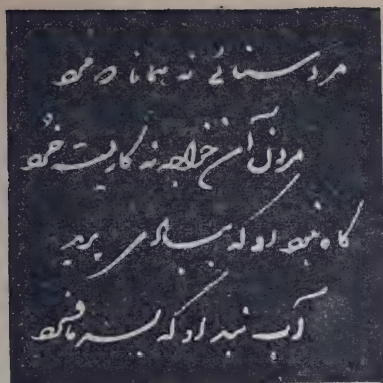 مرد سنائی نه همانا که مرد
مردن آن خواجه نه کاریست خرد
کاه نبود او که ببادی پرید
آب نبد او که بسرما فسرد